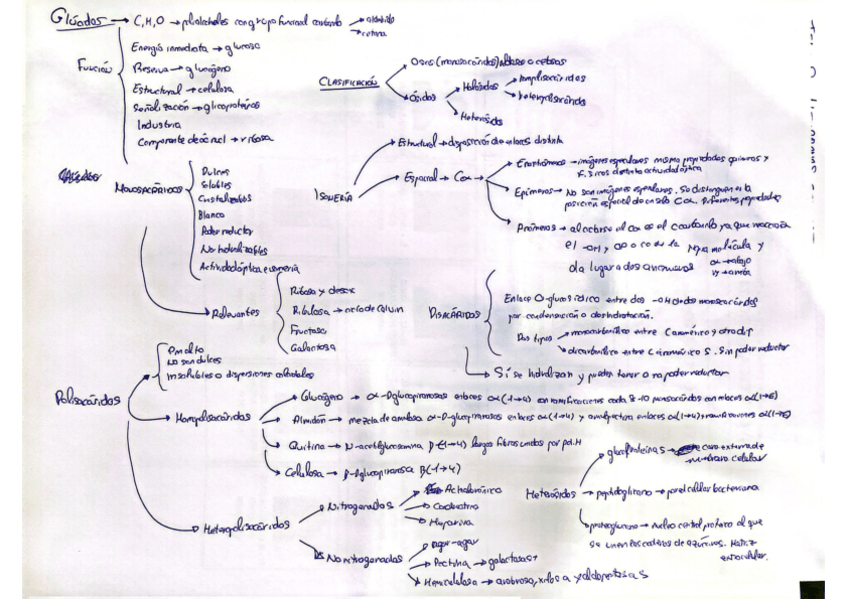 Glúcidos → C, H, O → polialcoholes con grupo funcional carbonilo → aldehído
→ cetona
Función
Energía inmediata → glucosa
Reserva → glucógeno
Estructural → celulosa
Señalización → glicoproteínas
Industria
Componente de ác nucl → ribosa
CLASIFICACIÓN
Osas (monosacáridos) aldosas o cetosas
Ósidos → Holósidos → homopolisacáridos
→ heteropolisacáridos
→ Heterósidos
ISOMERÍA
Estructural → disposición de enlaces distinta
Espacial → Cα
Enantiómeros → imágenes especulares misma propiedades químicas y
físicas distinta actividad óptica
Epímeros → No son imágenes especulares. Se distinguen en la
posición espacial de un solo Cα. Diferentes propiedades
Anómeros → el carbonilo ya que reacciona
el -OH y de la misma molécula y
da lugar a dos anómeros
α → abajo
β → arriba
Monosacáridos
Dulces
Solubles
Cristalizables
Blanco
Poder reductor
No hidrolizables
Actividad óptica e isomería
→ Relevantes
Ribosa y desox
Ribulosa → ciclo de Calvin
Fructosa
Galactosa
DISACÁRIDOS
Enlace O-glucosídico entre dos -OH de dos monosacáridos
por condensación o deshidratación.
Dos tipos → monocarbonílico entre C anomérico y otro
→ dicarbonílico entre C anomérico s. Sin poder reductor
→ Sí se hidrolizan y pueden tener o no poder reductor
Polisacáridos
Pm alto
No son dulces
insolubles o dispersiones coloidales
→ Homopolisacáridos
Glucógeno → α-D glucopiranosas enlaces α(1→4) con ramificaciones cada 8-10 monosacáridos con enlaces α(1→6)
Almidón → mezcla de amilosa α-D-glucopiranosas enlaces α(1→4) y amilopectina enlaces α(1→4) ramificaciones α(1→6)
Quitina → N-acetilglucosamina β(1→4) largas fibras unidas por pd.H
Celulosa → β-D glucopiranosa β(1→4)
→ Heteropolisacáridos
→ Nitrogenados → Ác hialurónico
→ Condroitina
→ Heparina
→ No nitrogenados → Agar-agar
→ Pectina → galactosa +
→ Hemicelulosa → arabinosa, xilosa y aldopentosas
Heterósidos
glicoproteínas → cara externa de
membrana celular
→ peptidoglicano → pared celular bacteriana
→ proteoglicano → núcleo central proteico al que
se unen las cadenas de azúcares. Matriz
extracelular.